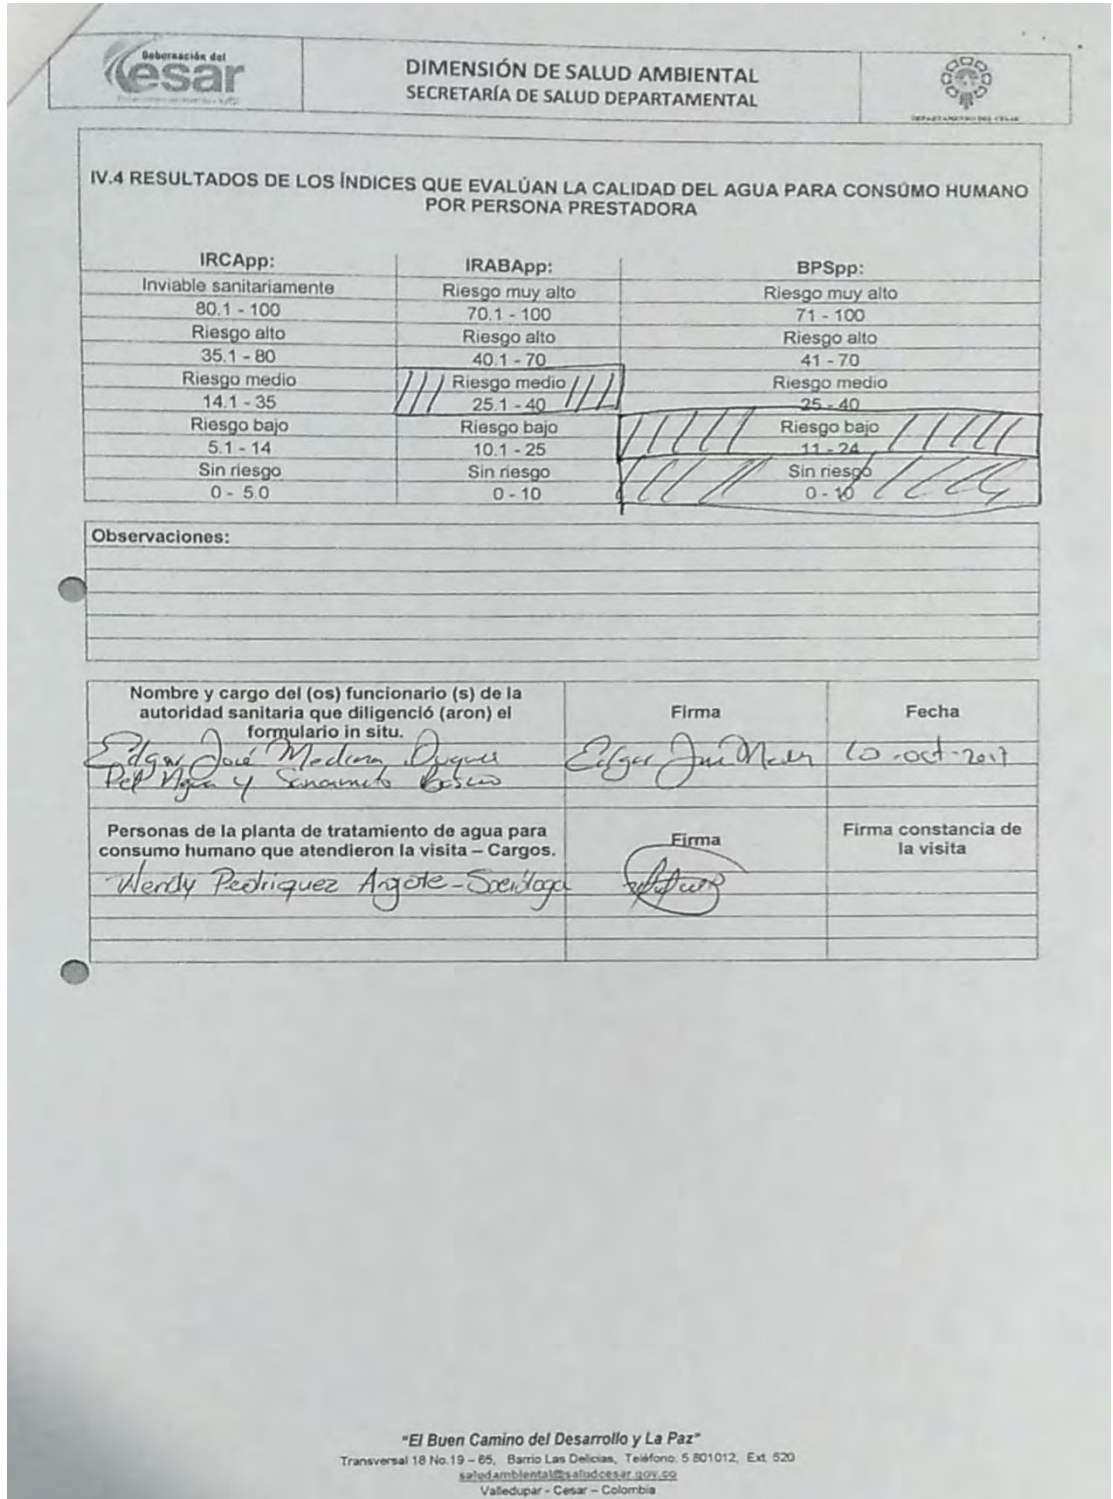 Gobernación del
Cesar
DIMENSIÓN DE SALUD AMBIENTAL
SECRETARÍA DE SALUD DEPARTAMENTAL
DEPARTAMENTO DEL CESAR
IV.4 RESULTADOS DE LOS ÍNDICES QUE EVALÚAN LA CALIDAD DEL AGUA PARA CONSÚMO HUMANO
POR PERSONA PRESTADORA
IRCApp: IRABApp: BPSpp:
Inviable sanitariamente Riesgo muy alto Riesgo muy alto
80.1 - 100 70.1 - 100 71 - 100
Riesgo alto Riesgo alto Riesgo alto
35.1 - 80 40.1 - 70 41 - 70
Riesgo medio Riesgo medio Riesgo medio
14.1 - 35 25.1 - 40 25 - 40
Riesgo bajo Riesgo bajo Riesgo bajo
5.1 - 14 10.1 - 25 11 - 24
Sin riesgo Sin riesgo Sin riesgo
0 - 5.0 0 - 10 0 - 10
Observaciones:
Nombre y cargo del (os) funcionario (s) de la
autoridad sanitaria que diligenció (aron) el
formulario in situ.
Firma
Fecha
Edgar José Medina
Agua y Basico
Edgar José
10-oct-2017
Personas de la planta de tratamiento de agua para
consumo humano que atendieron la visita – Cargos.
Firma
Firma constancia de
la visita
Wendy Pedriquez Argote - Socióloga
"El Buen Camino del Desarrollo y La Paz"
Transversal 18 No.19 – 65, Barrio Las Delicias, Teléfono: 5 801012, Ext. 520
saludambiental@saludcesar.gov.co
Valledupar - Cesar – Colombia